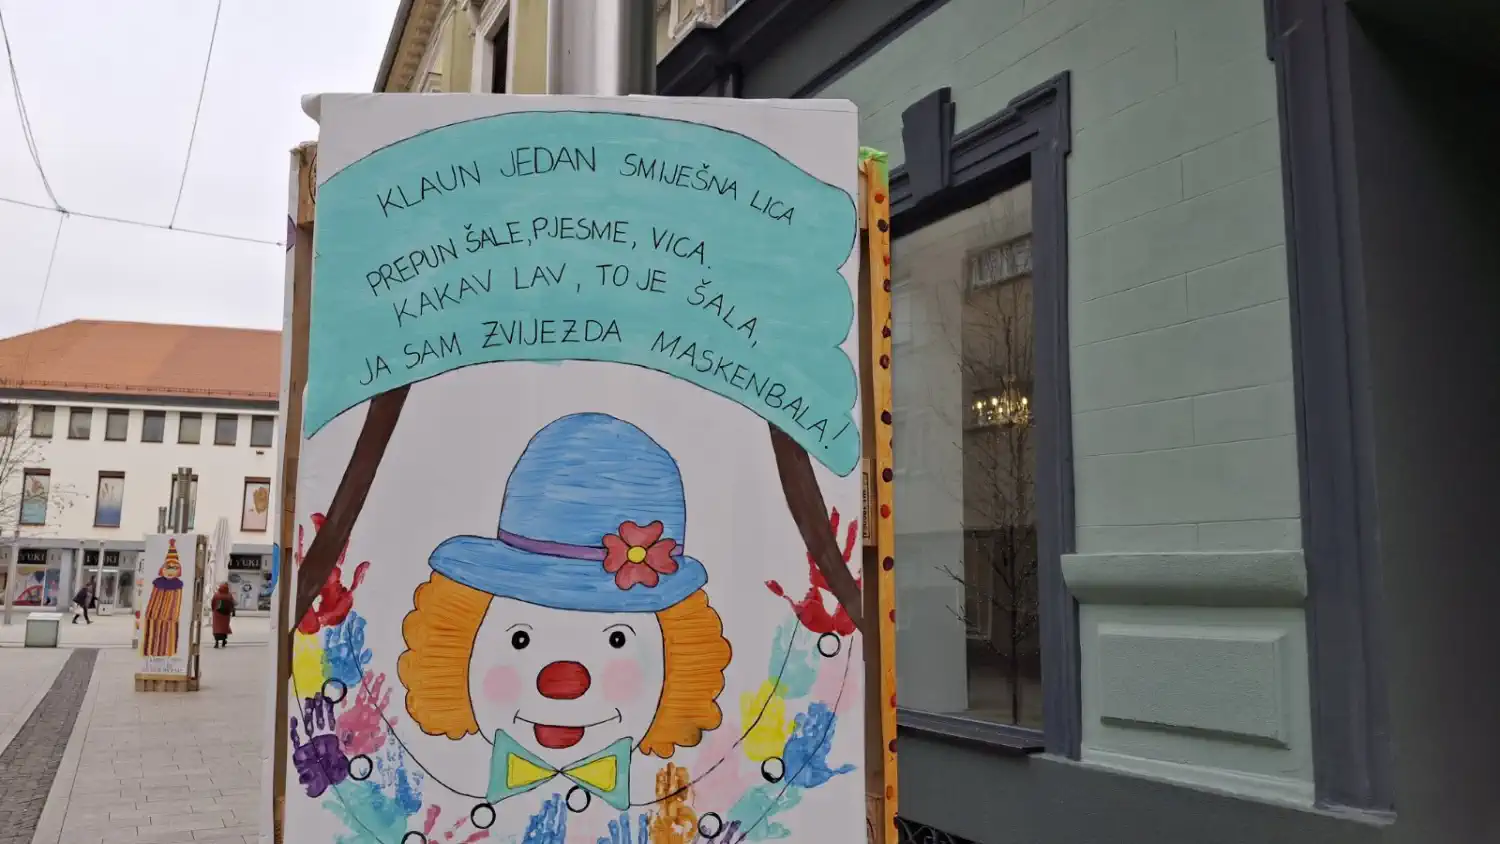 KLAUN JEDAN SMIJEŠNA LICA
PREPUN ŠALE, PJESME, VICA.
KAKAV LAV, TO JE ŠALA,
JA SAM ZVIJEZDA MASKENBALA!
YUKI
YUKI